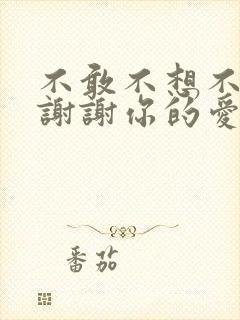 不敢不想不
謝謝你的愛
番茄